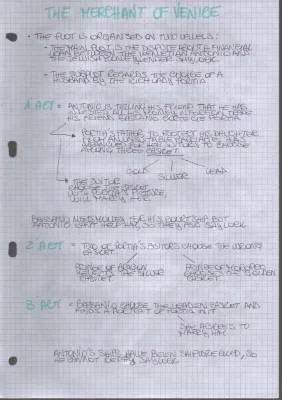 THE MERCHANT OF VENICE
• THE PLOT IS ORGANISED ON TWO LEVELS:
• THE MAIN PLOT IS THE DISPUTE ABOUT A FINANCIAL
LOAN BETWEEN THE VENETIAN ANTONIO AND
THE JEWISH MONEYLENDER SHYLOCK
• THE SUBPLOT REGARDS THE CHOICE OF A
HUSBAND BY THE RICH LADY PORTIA.
1 ACT = ANTONIO IS TELLING HIS FRIEND THAT HE HAS
INVESTED ALL HIS MONEY IN FOREIGN TRADE
HIS FRIEND BASSANIO
PORTIA'S FATHER, TO PROTECT HIS DAUGHTER
FOR HER SUITORS TO CHOOSE
AMONG THREE CASKET
GOLD
SILVER
LEAD
THE SUITOR
CASKET
WITH PORTIA'S PICTURE,
WILL MARRY HER.
BASSANIO NEEDS MONEY FOR HIS COURTSHIP BUT
ANTONIO CAN'T HELP HIM, SO THEY ASK SHYLOCK
2 ACT = TWO OF PORTIA'S SUITORS CHOOSE THE WRONG
CASKET
PRINCE OF ARAGON
THE SILVER
CASKET
PRINCE OF MOROCCO
CHOOSES THE GOLDEN
CASKET.
3 ACT = BASSANIO CHOOSE THE LEADEN CASKET AND
FINDS A PORTRAIT OF PORTIA IN IT
SHE AGREES TO
MARRY HIM
ANTONIO'S SHIPS HAVE BEEN SHIPWRECKED, SO
HE CANNOT REPAY SHYLOCK